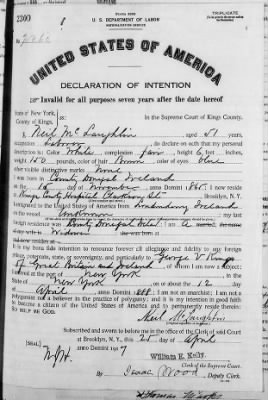 TRIPLICATE
U. S. DEPARTMENT OF LABOR
NATURALIZATION SERVICE
UNITED STATES OF AMERICA
DECLARATION OF INTENTION
Invalid for all purposes seven years after the date hereof
State of New York,
County of Kings,
In the Supreme Court of Kings County.
I, Neil McLaughlin, aged 51 years,
occupation Laborer, do declare on oath that my personal
description is: Color White, complexion fair, height 5 feet inches,
weight 150 pounds, color of hair Brown, color of eyes blue
other visible distinctive marks None
I was born in County Donegal Ireland
on the 15 day of November, anno Domini 1865; I now reside
at Kings County Hospital Clarkson St., Brooklyn, N.Y.
I emigrated to the United States of America from Londonderry Ireland
on the vessel Unknown; my last
foreign residence was County Donegal Ireland
Widower
It is my bona fide intention to renounce forever all allegiance and fidelity to any foreign
prince, potentate, state, or sovereignty, and particularly to George V King
of Great Britain and Ireland, of whom I am now a subject;
I arrived at the port of New York, in the
State of New York, on or about the 12 day
of April, anno Domini 1888; I am not an anarchist; I am not a
polygamist nor a believer in the practice of polygamy; and it is my intention in good faith
to become a citizen of the United States of America and to permanently reside therein:
SO HELP ME GOD.
Neil McLaughlin
Subscribed and sworn to before me in the office of the Clerk of said Court
at Brooklyn, N.Y., this 25 day of April
[SEAL] anno Domini 1917
William E. Kelly
Clerk of the Supreme Court.
By Isaac Wood, Deputy Clerk.